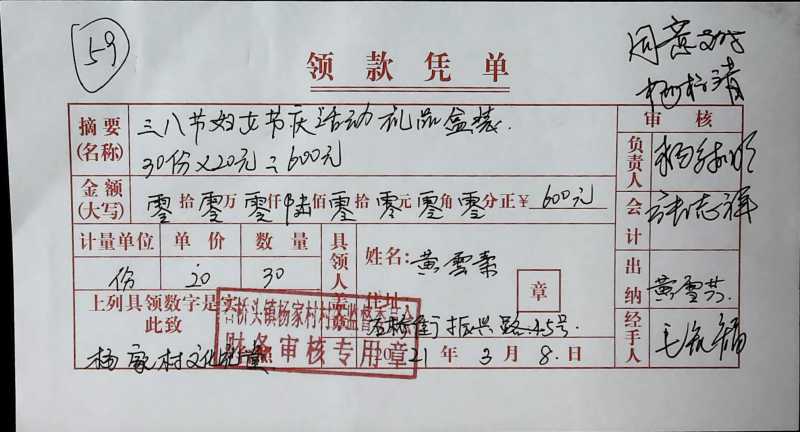 59
领款凭单
同意
摘要(名称) 三八节妇女节庆活动礼品盒装.
30份×20元=600元
金额(大写) 零拾零万零仟陆佰零拾零元零角零分正¥ 600元
计量单位 单价 数量
份 20 30
具领人盖章
姓名: 黄雪
章
住址
振兴路45号
上列具领数字是实
此致
杨家村文化礼堂
桥头镇杨家村村务监督委员会
财务审核专用章
2021年3月8日
审核
负责人
会计
出纳 黄雪芬
经手人